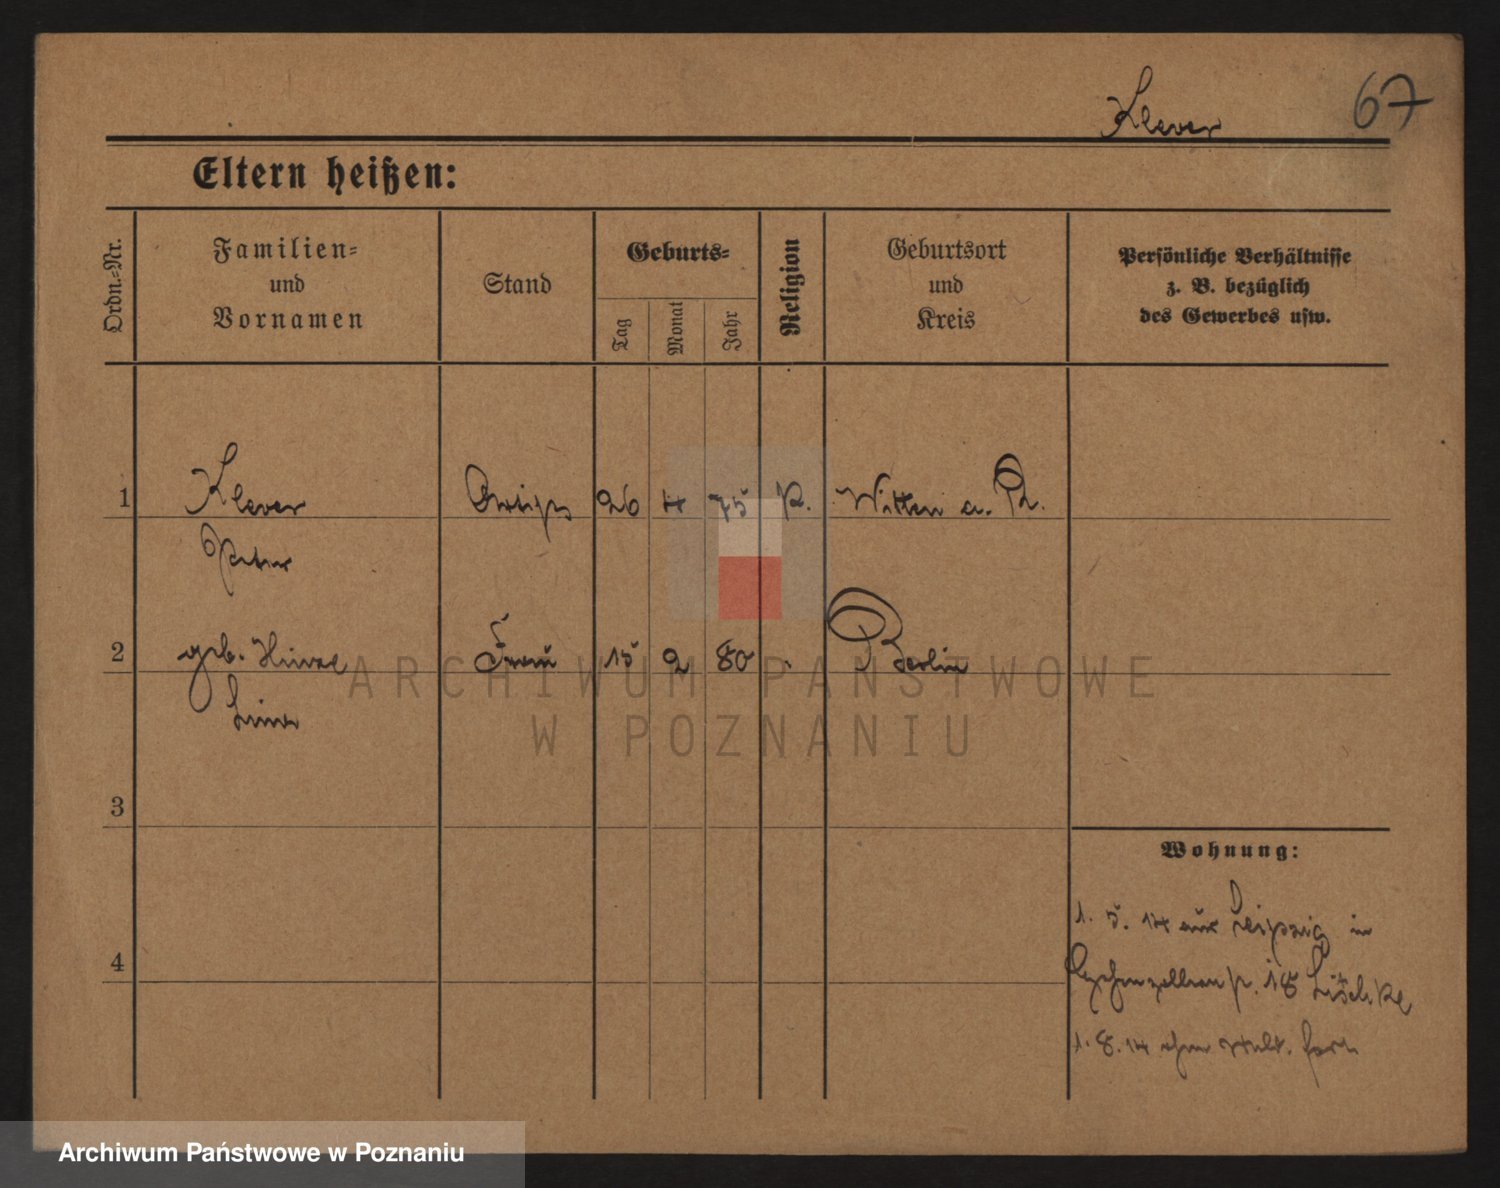 Klever 67
Eltern heißen:
Ordn.-Nr.
Familien-
und
Vornamen
Stand
Geburts-
Tag
Monat
Jahr
Religion
Geburtsort
und
Kreis
Persönliche Verhältnisse
z. B. bezüglich
des Gewerbes usw.
1 Klever 26 4 75 K. Witten a. R.
Peter
2 geb. Frau 15 2 80 Berlin
3
4
Wohnung:
1. 5. 14 aus Leipzig in
18
1. 8. 14 ohne fort
ARCHIWUM PAŃSTWOWE
W POZNANIU
Archiwum Państwowe w Poznaniu